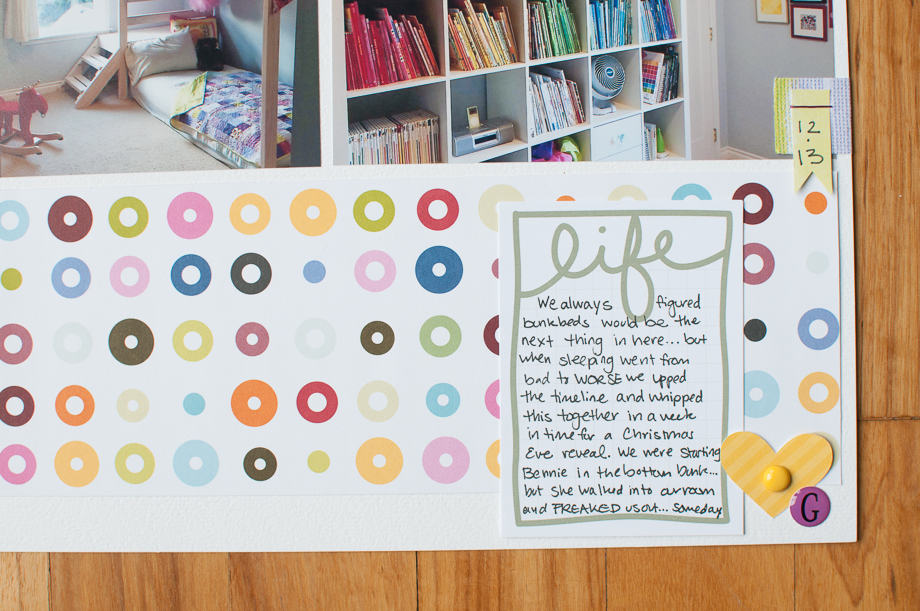 12
.
13
life
We always figured
bunkbeds would be the
next thing in here... but
when sleeping went from
bad to WORSE we upped
the timeline and whipped
this together in a week
in time for a Christmas
Eve reveal. We were starting
Bennie in the bottom bunk...
but she walked into our room
and FREAKED us out... someday
G